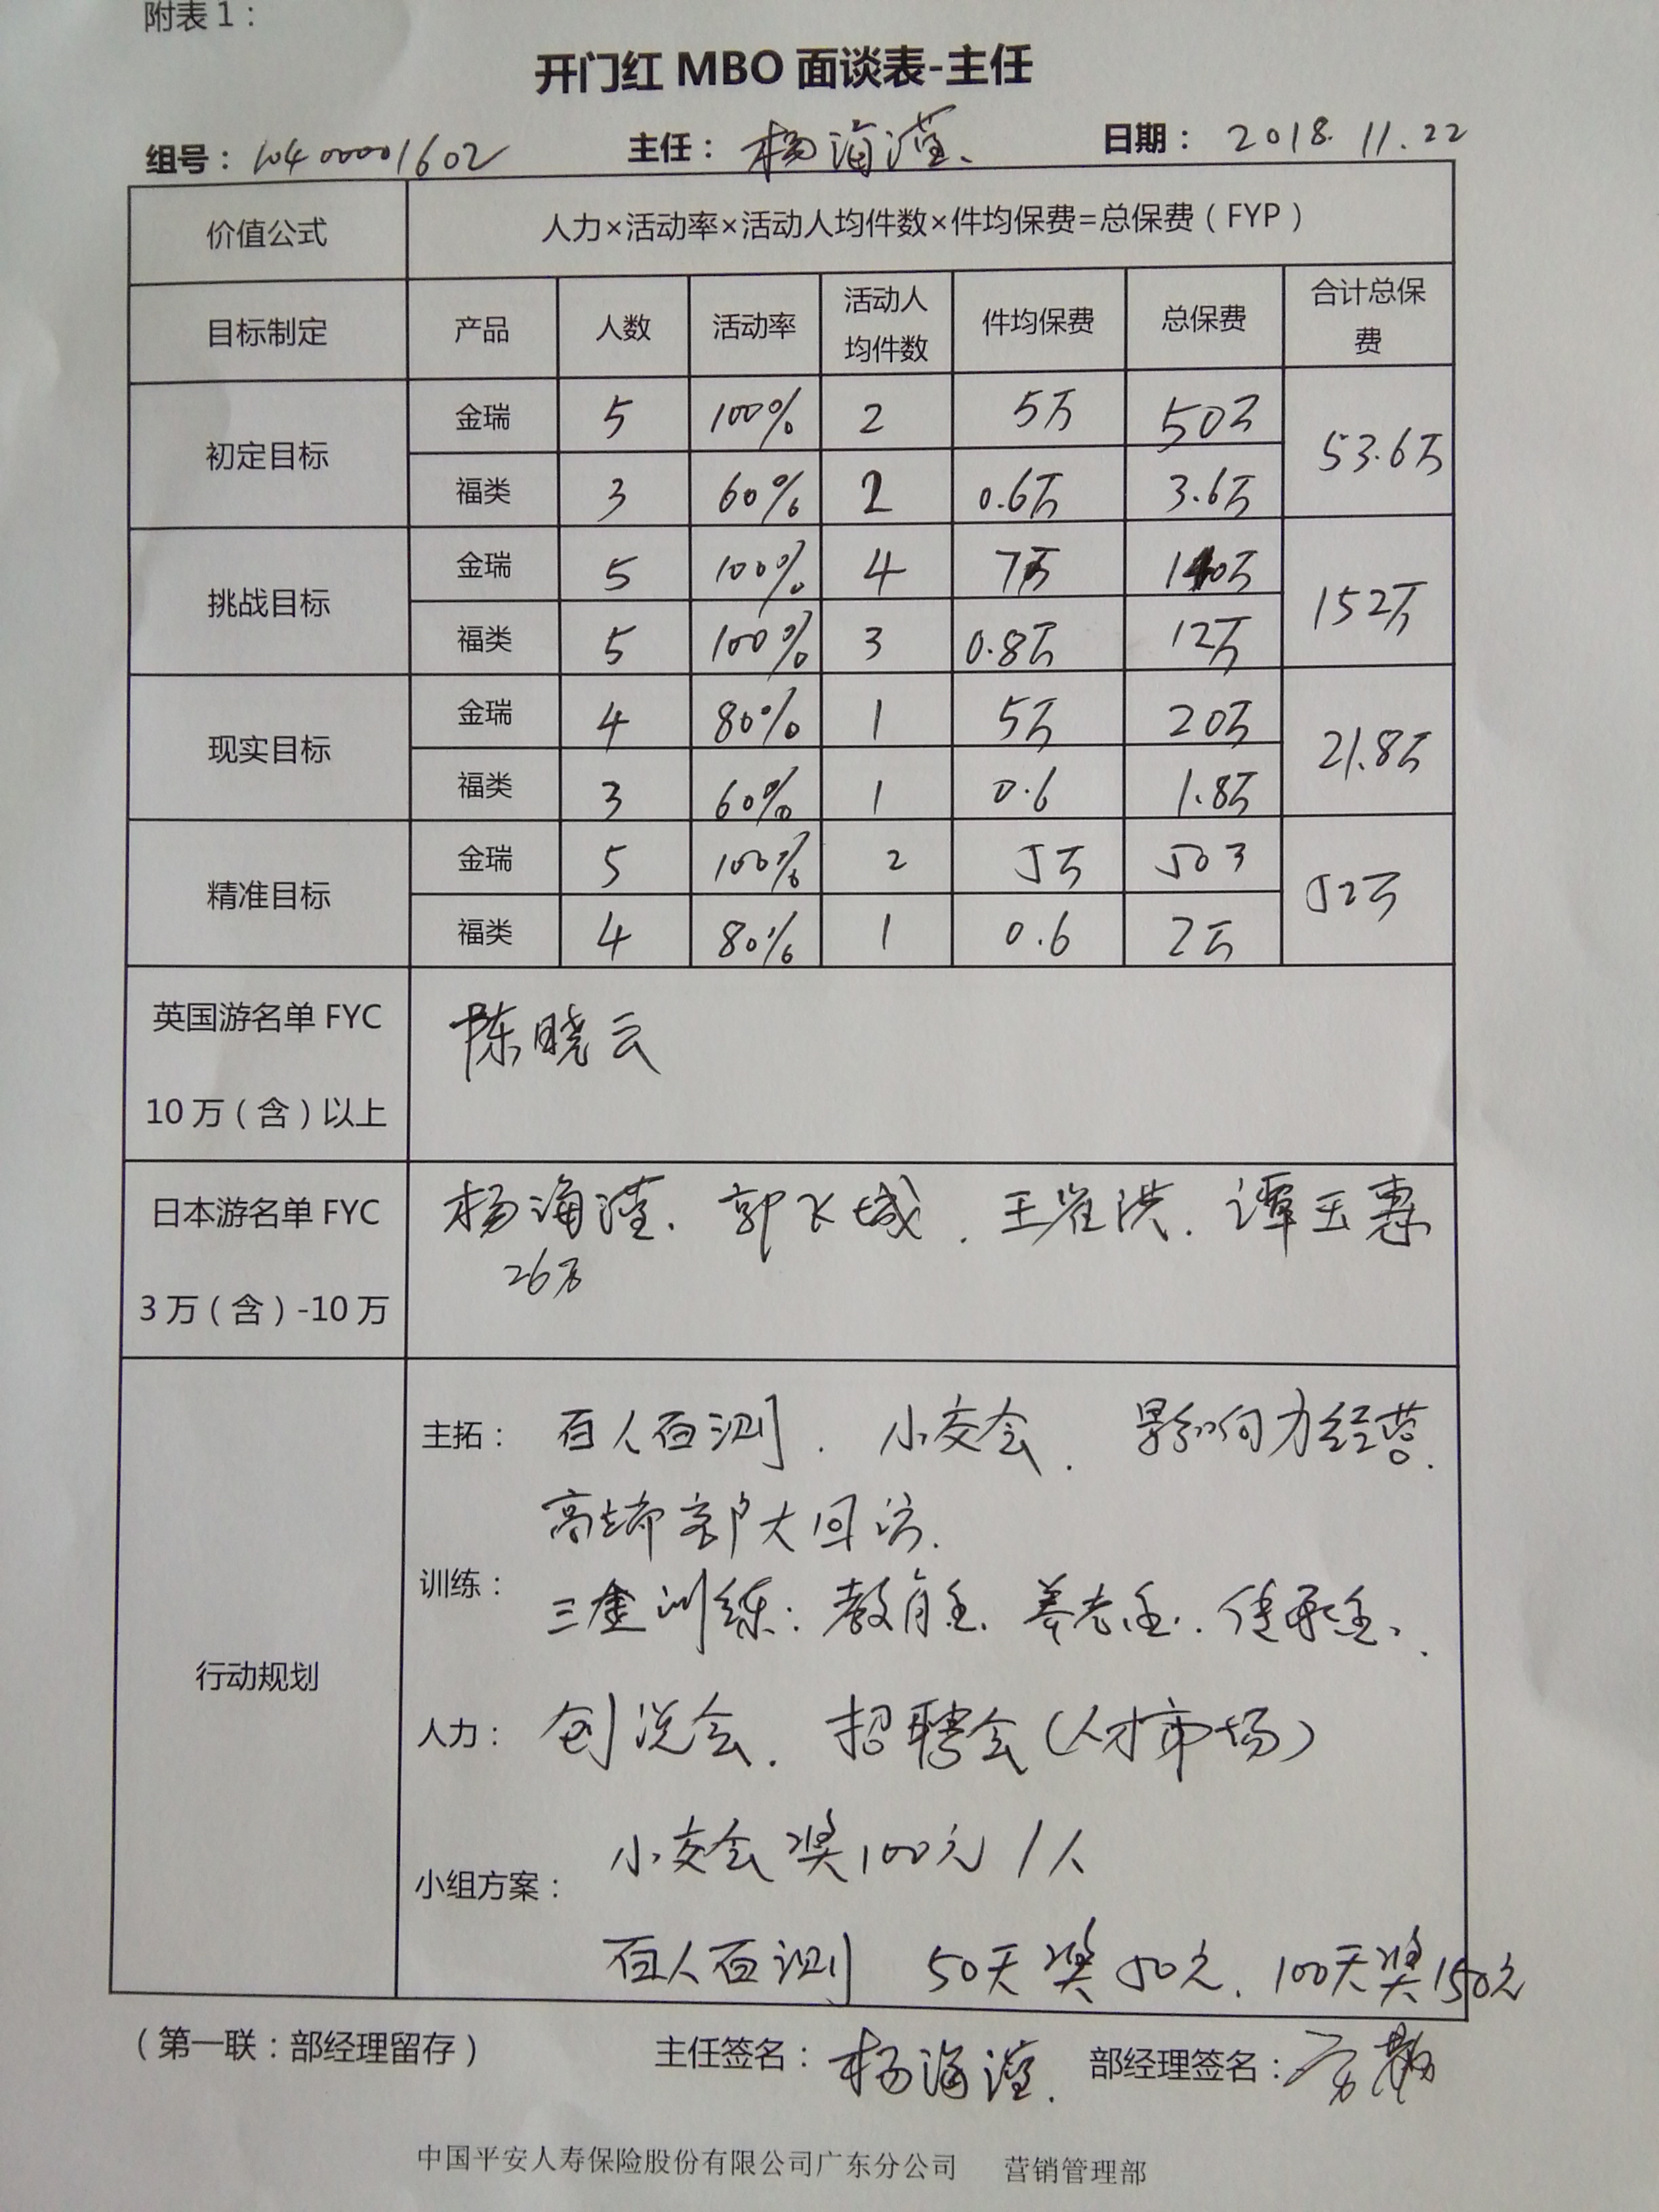 附表1：
开门红 MBO 面谈表-主任
组号：10400001602 主任：杨海滢、 日期：2018.11.22
价值公式 人力×活动率×活动人均件数×件均保费=总保费（FYP）
目标制定 产品 人数 活动率 活动人均件数 件均保费 总保费 合计总保费
初定目标 金瑞 5 100% 2 5万 50万 53.6万
福类 3 60% 2 0.6万 3.6万
挑战目标 金瑞 5 100% 4 7万 140万 152万
福类 5 100% 3 0.8万 12万
现实目标 金瑞 4 80% 1 5万 20万 21.8万
福类 3 60% 1 0.6 1.8万
精准目标 金瑞 5 100% 2 5万 50万 52万
福类 4 80% 1 0.6 2万
英国游名单 FYC
10万（含）以上
陈晓云
日本游名单 FYC
3万（含）-10万
杨海滢、郭飞城、王崔洪、谭玉惠
26万
行动规划
主拓：百人百测、小交会、影响力经营、
高端客户大回访.
训练：三金训练：教育金、养老金、传承金、
人力：创说会、招聘会（人才市场）
小组方案：小交会奖100元/人
百人百测 50天奖50元、100天奖150元
（第一联：部经理留存） 主任签名：杨海滢. 部经理签名：
中国平安人寿保险股份有限公司广东分公司 营销管理部